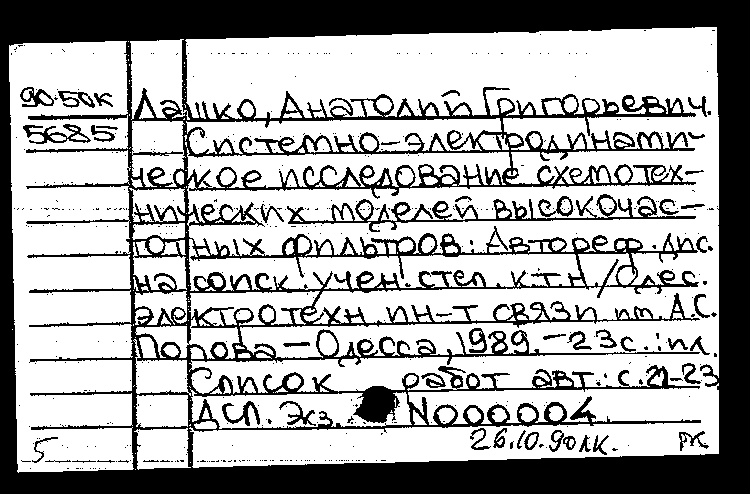 90-50к Лашко, Анатолий Григорьевич.
5685 Системно-электродинами-
ческое исследование схемотех-
нических моделей высокочас-
тотных фильтров: Автореф. дис.
на соиск. учен. степ. к.т.н./Одес.
электротехн. ин-т связи им. А.С.
Попова — Одесса, 1989. - 23с.: ил.
Список работ авт.: с. 21-23
ДСП. Экз. N000004.
5 26.10.90 лк. РК